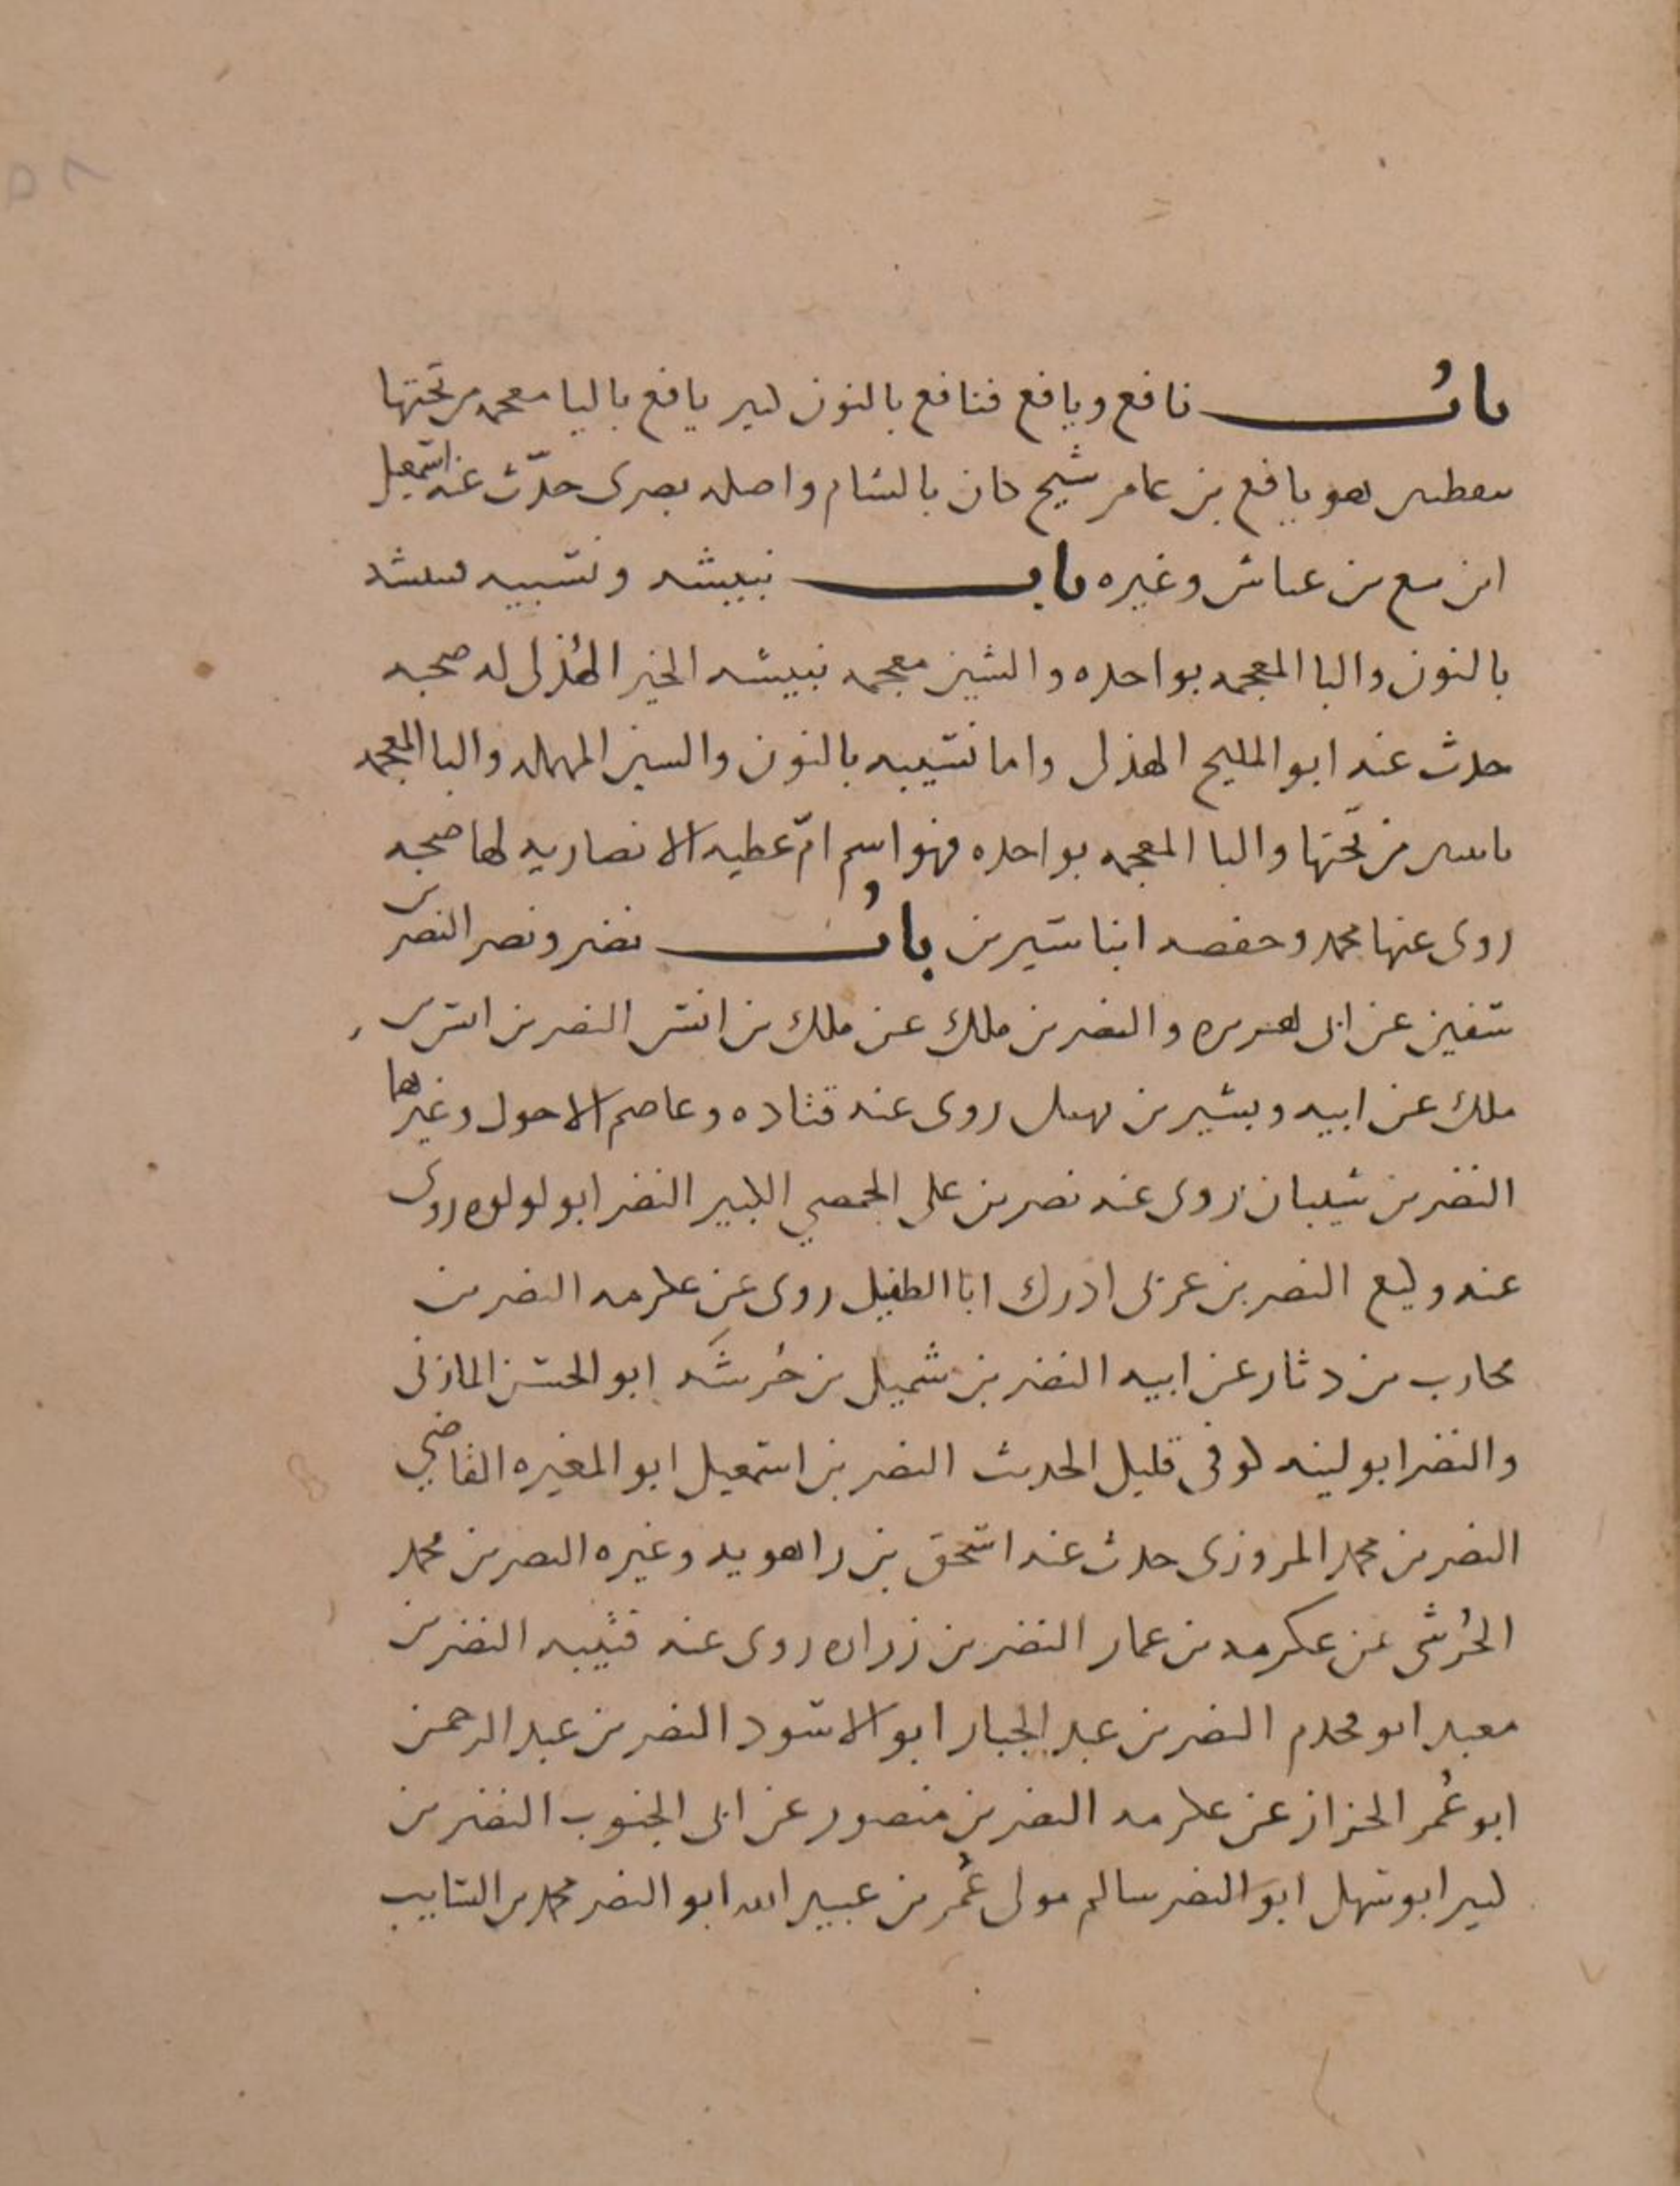 باب نافع ويافع فنافع بالنون كثير يافع باليا معجمه من تحتها
بنقطتين هو يافع بن عامر شيخ كان بالشام واصله بصرى حدّث عنه اسمعيل
ابن عياش وغيره باب نبيشه ونسيبه نبيشه
بالنون والبا المعجمه بواحده والشين معجمه نبيشه الخير الهُذلى له صحبه
حدث عنه ابو المليح الهذلى واما نسيبه بالنون والسين المهمله واليا المعجمه
باثنتين من تحتها والبا المعجمه بواحده فهو اسم امّ عطيه الانصاريه لها صحبه
روى عنها محمد وحفصه ابنا سيرين بابُ نضر ونصر النضر بن
سفين عن ابى هريره والنضر بن ملك عن ملك بن انس النضر بن انس بن
ملك عن ابيه وبشير بن نهيك روى عنه قتاده وعاصم الاحول وغيرهما
النضر بن شيبان روى عنه نصر بن على الجهضمي الكبير النضر ابو لولوه روى
عنه وكيع النضر بن عربى ادرك ابا الطفيل روى عن عكرمه النضر بن
محارب بن دثار عن ابيه النضر بن شميل بن خُرشَه ابو الحسن المازنى
والنضر ابو لينه كوفى قليل الحديث النضر بن اسمعيل ابو المغيره القاضي
النضر بن محمد المروزى حدث عنه اسحق بن راهويه وغيره النضر بن محمد
الجُرشى عن عكرمه بن عمار النضر بن زراره روى عنه قتيبه النضر بن
معبد ابو قحذم النضر بن عبد الجبار ابو الاسود النضر بن عبد الرحمن
ابو عُمر الخزاز عن عكرمه النضر بن منصور عن ابى الجنوب النضر بن
كثير ابو سهل ابو النضر سالم مولى عُمر بن عبيد الله ابو النضر محمد بن السايب